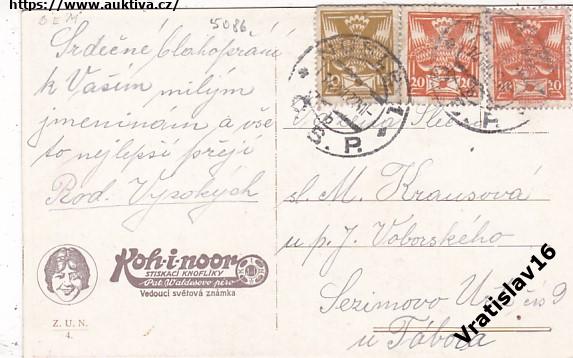 https://www.auktiva.cz/
5086
Srdečné blahopřání
k Vašim milým
jmeninám a vše
to nejlepší přeji
Rod. Vysokých
Koh-i-noor
STISKACÍ KNOFLÍKY
Pat. Waldesovo péro
Vedoucí světová známka
Z. U. N.
4.
20 20 20
P.
P.
sl. M. Krausová
u p. J. Voborského
Sezimovo
u Tábora
Vratislav16